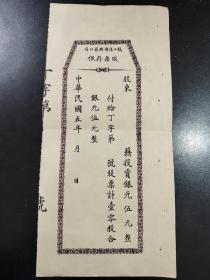 股票存根
股東
蘇投資銀元伍元整
付給丁字第
號股票計壹零股合
銀元伍元整
中華民國五年 月 日
字第
號